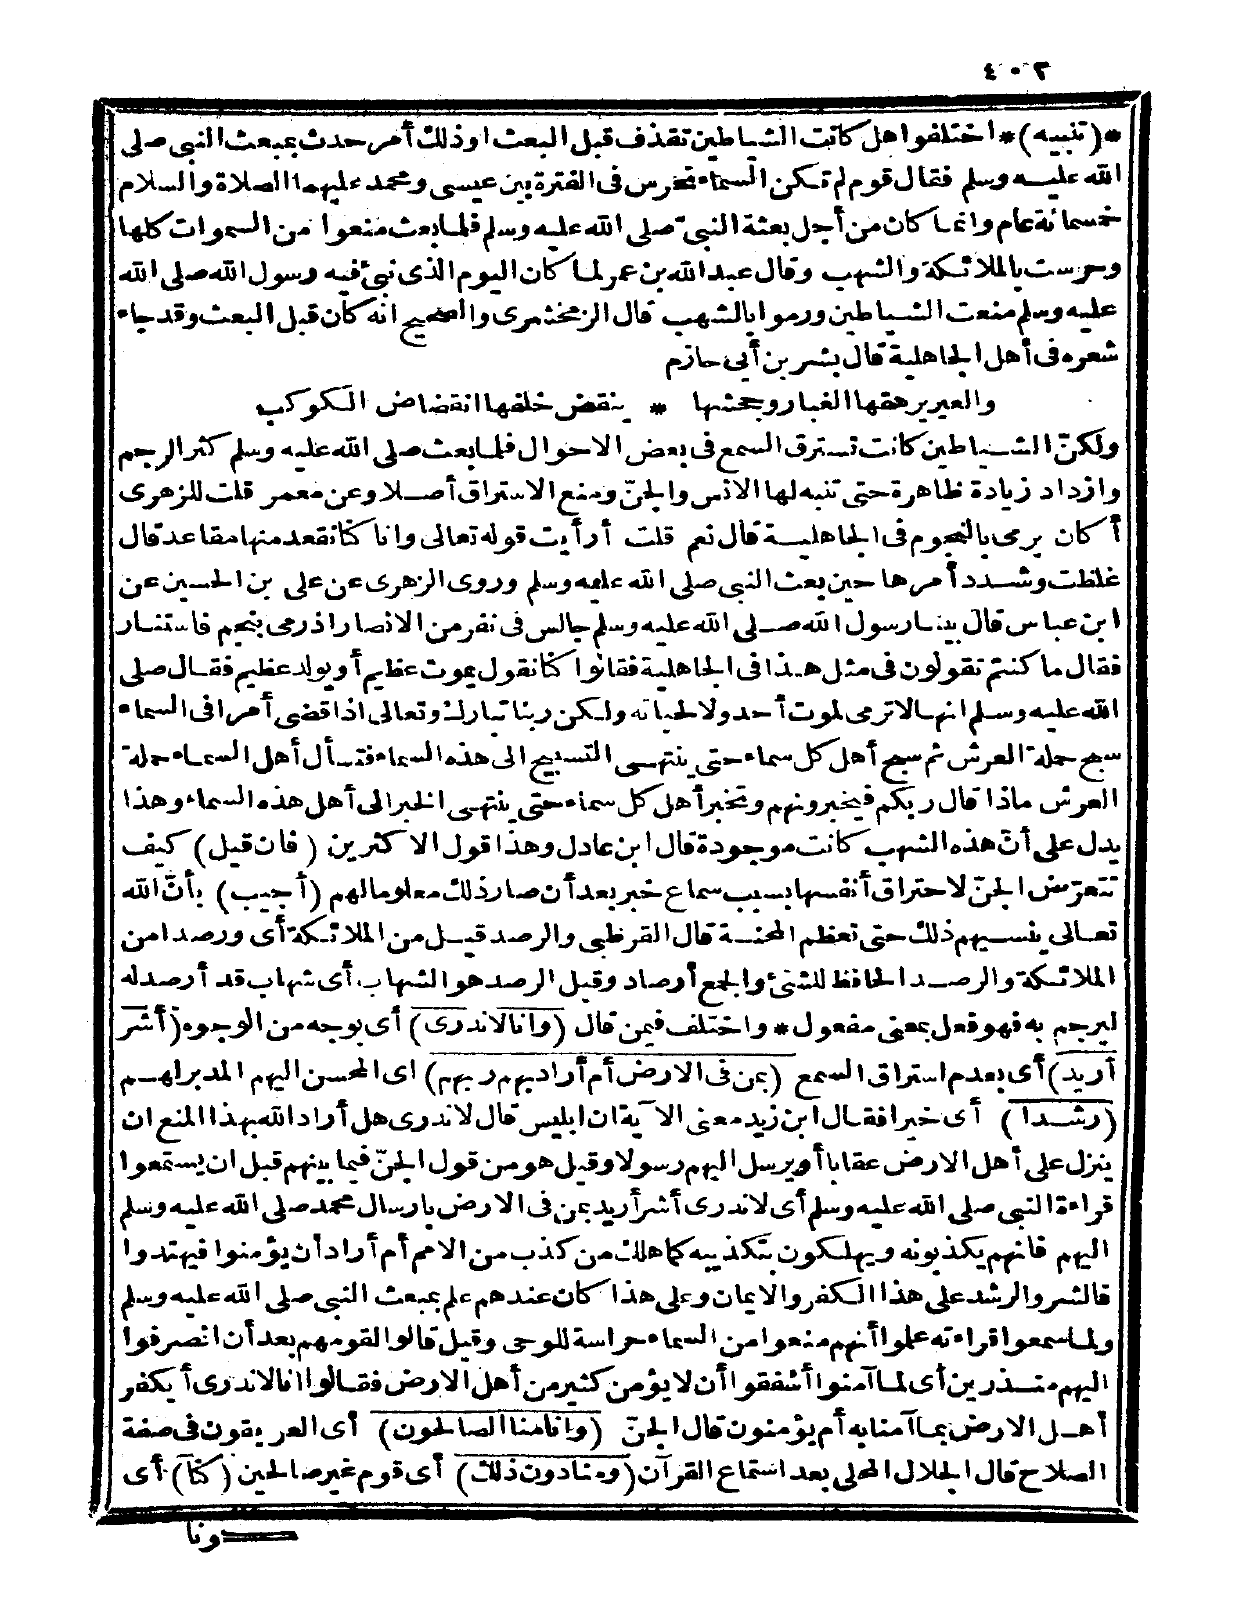 ٤٠٣
*(تنبيه)* اختلفوا هل كانت الشياطين تقذف قبل البعث او ذلك أمر حدث بمبعث النبى صلى
الله عليه وسلم فقال قوم لم تكن السماء تحرس فى الفترة بين عيسى ومحمد عليهما الصلاة والسلام
خمسمائة عام وانما كان من أجل بعثة النبىّ صلى الله عليه وسلم فلما بعث منعوا من السموات كلها
وحرست بالملائكة والشهب وقال عبد الله بن عمر لما كان اليوم الذى نبئ فيه رسول الله صلى الله
عليه وسلم منعت الشياطين ورموا بالشهب قال الزمخشرى والصحيح انه كان قبل البعث وقد جاء
شعره فى أهل الجاهلية قال بشر بن أبى حازم
والعير يرهقها الغبار وجحشها * ينقض خلفها انقضاض الكوكب
ولكنّ الشياطين كانت تسترق السمع فى بعض الاحوال فلما بعث صلى الله عليه وسلم كثر الرجم
وازداد زيادة ظاهرة حتى تنبه لها الانس والجنّ ومنع الاستراق أصلا وعن معمر قلت للزهرى
أكان يرمى بالنجوم فى الجاهلية قال نعم قلت أرأيت قوله تعالى وانا كنا نقعد منها مقاعد قال
غلظت وشدد أمرها حين بعث النبى صلى الله عليه وسلم وروى الزهرى عن على بن الحسين عن
ابن عباس قال بينا رسول الله صلى الله عليه وسلم جالس فى نفر من الانصار اذ رمى بنجم فاستنار
فقال ما كنتم تقولون فى مثل هذا فى الجاهلية فقالوا كنا نقول يموت عظيم أو يولد عظيم فقال صلى
الله عليه وسلم انها لا ترمى لموت أحد ولا لحياته ولكن ربنا تبارك وتعالى اذا قضى أمرا فى السماء
سبح حملة العرش ثم سبح أهل كل سماء حتى ينتهى التسبيح الى هذه السماء فتسأل أهل السماء حملة
العرش ماذا قال ربكم فيخبرونهم وتخبر أهل كل سماء حتى ينتهى الخبر الى أهل هذه السماء وهذا
يدل على أنّ هذه الشهب كانت موجودة قال ابن عادل وهذا قول الاكثرين (فان قيل) كيف
تتعرّض الجنّ لاحتراق أنفسها بسبب سماع خبر بعد أن صار ذلك معلوما لهم (أجيب) بأنّ الله
تعالى ينسيهم ذلك حتى تعظم المحنة قال القرظبى والرصد قيل من الملائكة أى ورصدا من
الملائكة والرصد الحافظ للشئ والجمع أرصاد وقيل الرصد هو الشهاب أى شهاب قد أرصد له
ليرجم به فهو فعل بمعنى مفعول * واختلف فيمن قال (وانا لا ندرى) أى بوجه من الوجوه (أشر
أريد) أى بعدم استراق السمع (بمن فى الارض أم أراد بهم ربهم) اى المحسن اليهم المدبر لهم
(رشدا) أى خيرا فقال ابن زيد معنى الآية ان ابليس قال لا ندرى هل أراد الله بهذا المنع ان
ينزل على أهل الارض عقابا أو يرسل اليهم رسولا وقيل هو من قول الجنّ فيما بينهم قبل ان يستمعوا
قراءة النبى صلى الله عليه وسلم أى لا ندرى أشر أريد بمن فى الارض بارسال محمد صلى الله عليه وسلم
اليهم فانهم يكذبونه ويهلكون بتكذيبه كما هلك من كذب من الامم أم أراد أن يؤمنوا فيهتدوا
فالشر والرشد على هذا الكفر والايمان وعلى هذا كان عندهم علم بمبعث النبى صلى الله عليه وسلم
ولما سمعوا قراءته علموا أنهم منعوا من السماء حراسة للوحى وقيل قالوا لقومهم بعد أن انصرفوا
اليهم منذرين أى لما آمنوا أشفقوا أن لا يؤمن كثير من أهل الارض فقالوا انا لا ندرى أيكفر
أهل الارض بما آمنا به أم يؤمنون قال الجنّ (وانا منا الصالحون) أى العريقون فى صفة
الصلاح قال الجلال المحلى بعد استماع القرآن (ومنا دون ذلك) أى قوم غير صالحين (كنا) أى
ونا